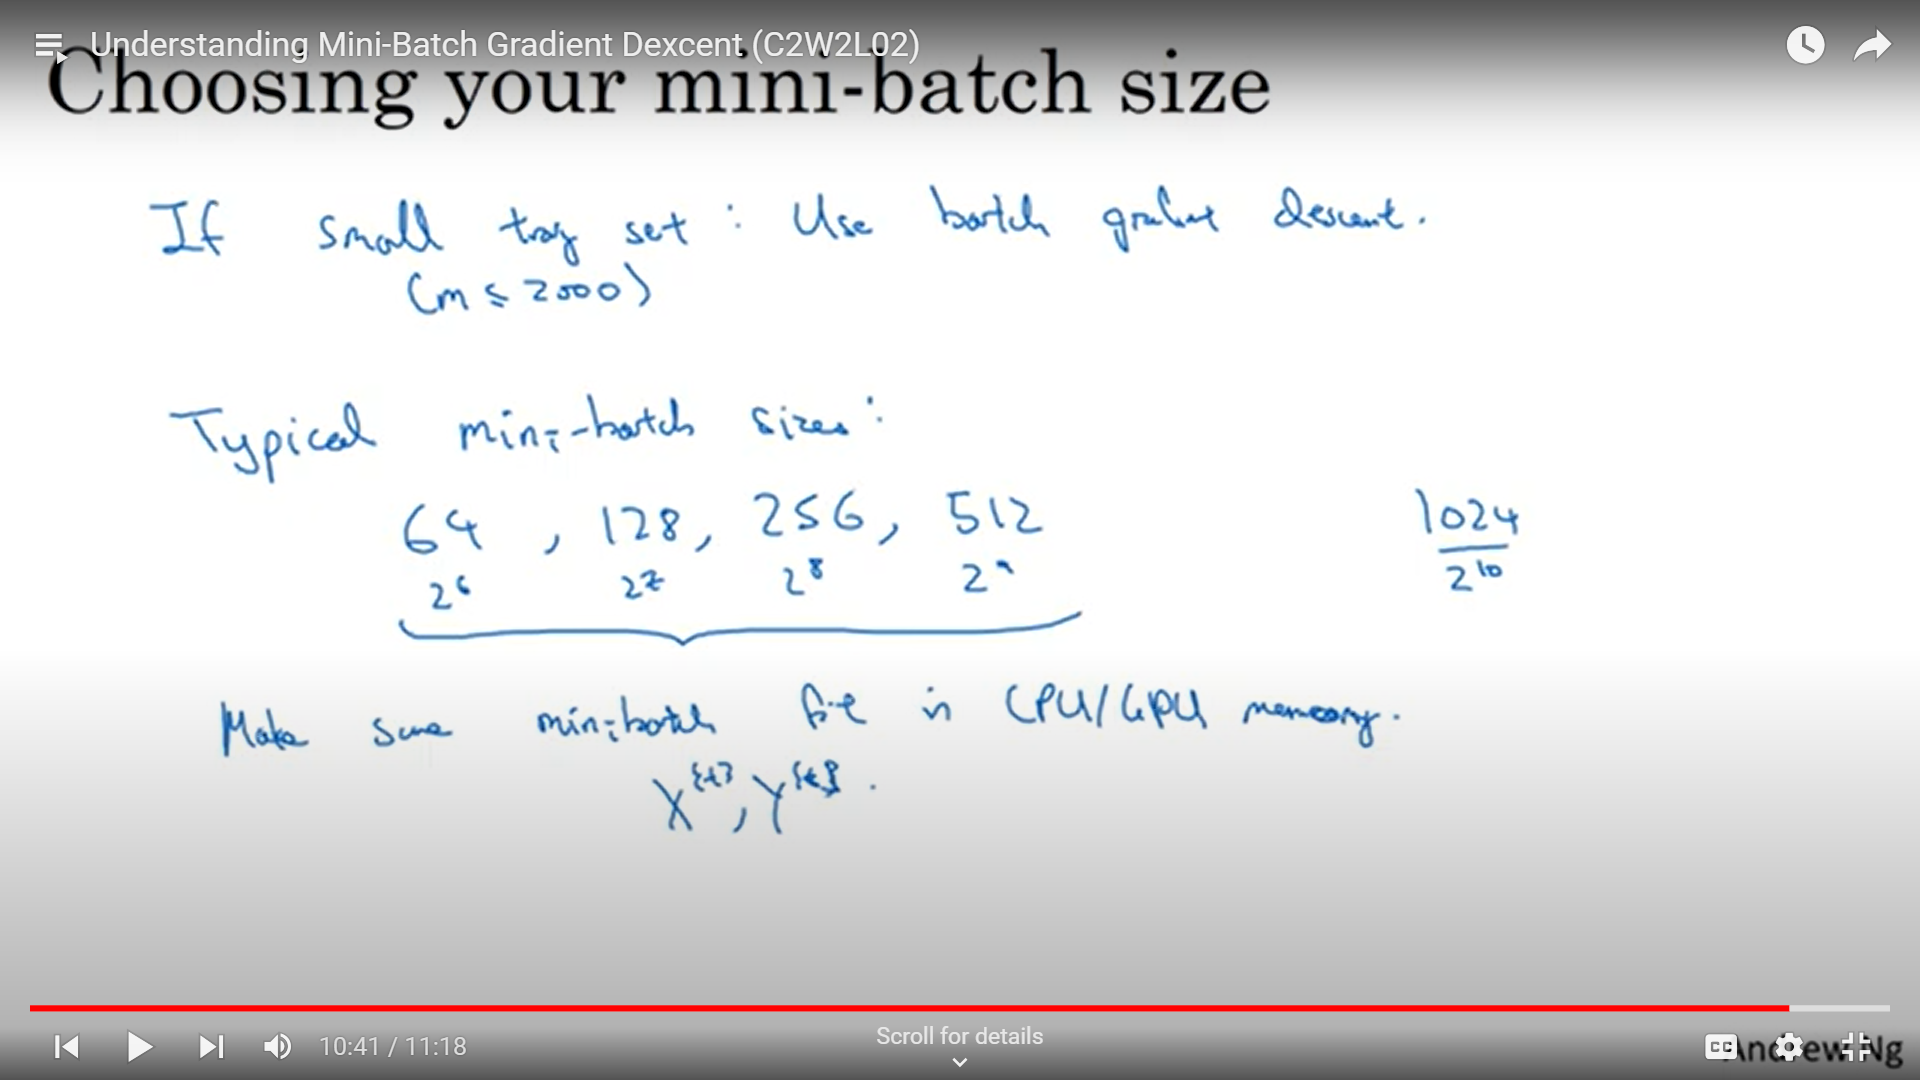 Understanding Mini-Batch Gradient Dexcent (C2W2L02)
Choosing your mini-batch size
If small set : Use batch gradient descent.
(m ≤ 2000)
Typical mini-batch sizes:
64 , 128, 256, 512 1024
2^6 2^7 2^8 2^9 2^10
Make sure minibatch fit in CPU/GPU memory.
X^{t}, Y^{t}.
10:41 / 11:18
Scroll for details
CC
Andrew Ng